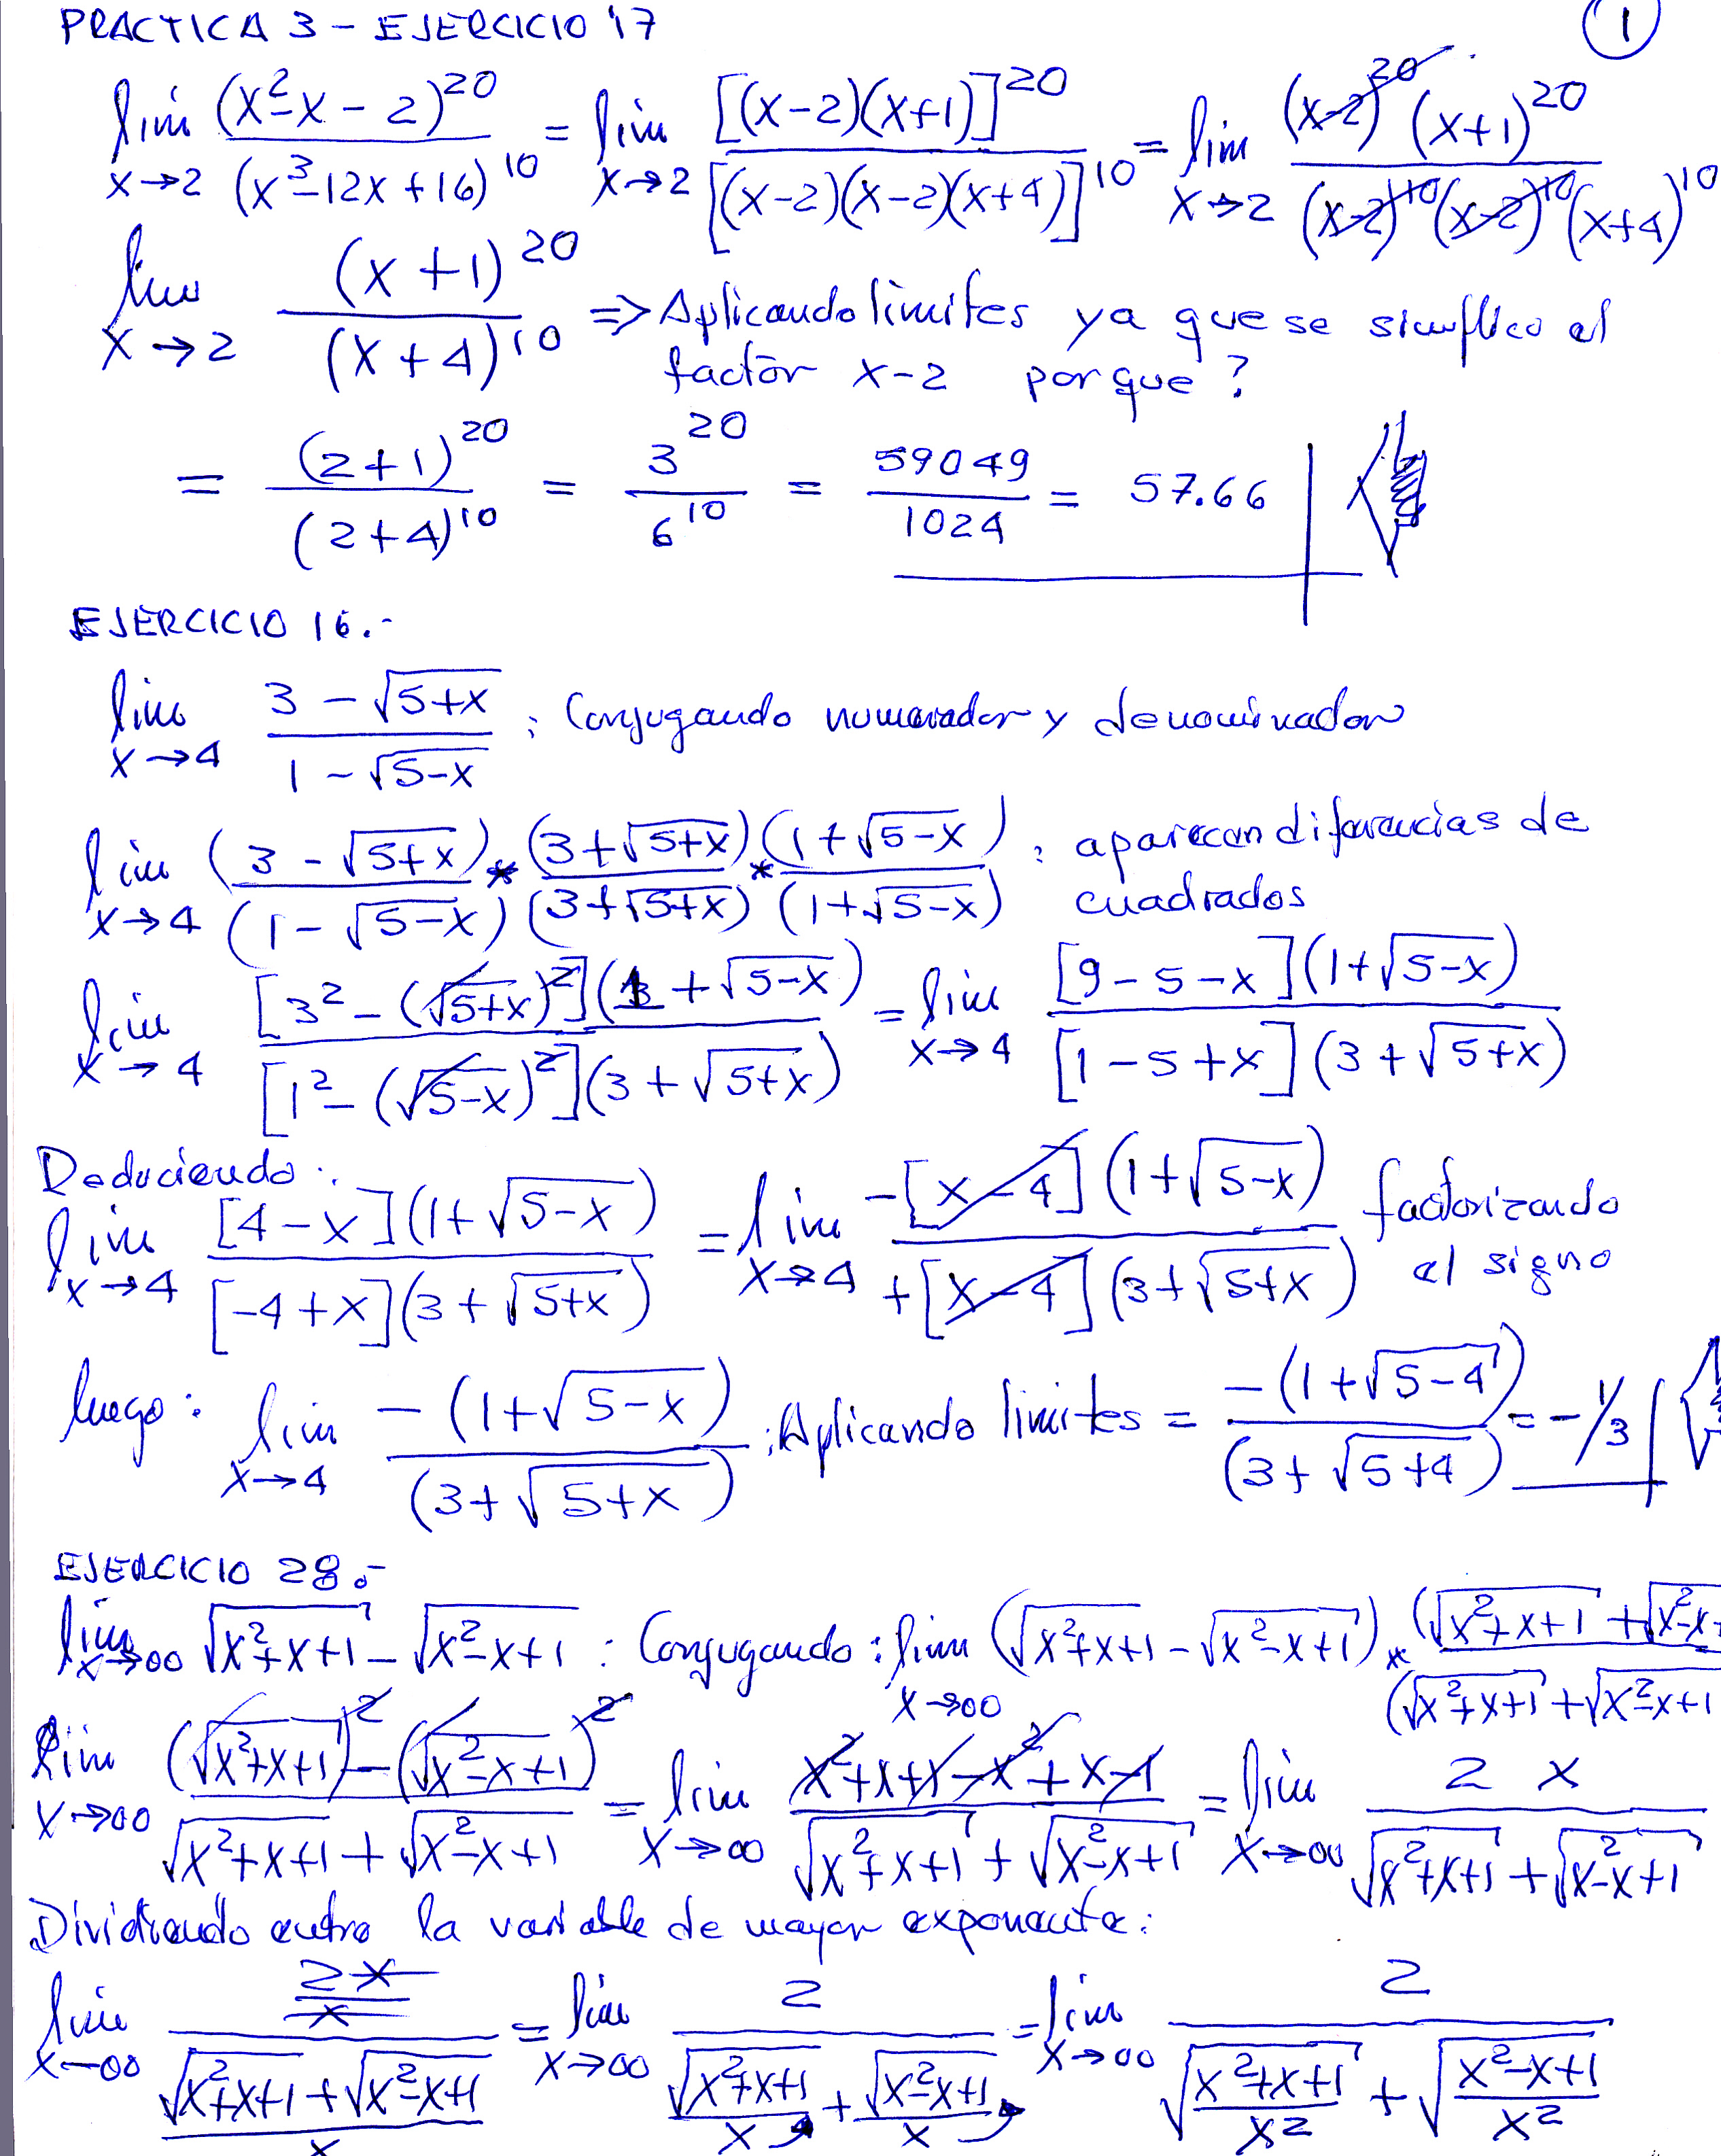 PRACTICA 3 - EJERCICIO 17
1
lim x→2 (x²-x-2)^20 / (x³-12x+16)^10 = lim x→2 [(x-2)(x+1)]^20 / [(x-2)(x-2)(x+4)]^10 = lim x→2 (x-2)^20 (x+1)^20 / (x-2)^10 (x-2)^10 (x+4)^10
lim x→2 (x+1)^20 / (x+4)^10 => Aplicando limites ya que se simplico el
factor x-2 porque?
= (2+1)^20 / (2+4)^10 = 3^20 / 6^10 = 59049 / 1024 = 57.66
EJERCICIO 16.-
lim x→4 3 - √(5+x) / 1 - √(5-x) ; Conjugando numerador y denominador
lim x→4 (3 - √(5+x)) / (1 - √(5-x)) * (3+√(5+x)) / (3+√(5+x)) * (1+√(5-x)) / (1+√(5-x)) : aparecen diferencias de
cuadrados
lim x→4 [3² - (√(5+x))²](1 + √(5-x)) / [1² - (√(5-x))²](3 + √(5+x)) = lim x→4 [9 - 5 - x](1+√(5-x)) / [1 - 5 + x](3 + √(5+x))
Deduciendo:
lim x→4 [4 - x](1+√(5-x)) / [-4 + x](3 + √(5+x)) = lim x→4 -[x-4](1+√(5-x)) / +[x-4](3+√(5+x)) factorizando
el signo
luego: lim x→4 -(1+√(5-x)) / (3+√(5+x)) ; Aplicando limites = -(1+√(5-4)) / (3+√(5+4)) = -1/3
EJERCICIO 28.-
lim x→∞ √(x²+x+1) - √(x²-x+1) : Conjugando : lim x→∞ (√(x²+x+1) - √(x²-x+1)) * (√(x²+x+1) + √(x²-x+ / (√(x²+x+1) + √(x²-x+1
lim x→∞ (√(x²+x+1))² - (√(x²-x+1))² / √(x²+x+1) + √(x²-x+1) = lim x→∞ x²+x+1-x²+x-1 / √(x²+x+1) + √(x²-x+1) = lim x→∞ 2x / √(x²+x+1) + √(x²-x+1)
Dividiendo entre la variable de mayor exponente:
lim x→∞ 2x/x / (√(x²+x+1) + √(x²-x+1))/x = lim x→∞ 2 / √(x²+x+1)/x + √(x²-x+1)/x = lim x→∞ 2 / √((x²+x+1)/x²) + √((x²-x+1)/x²)